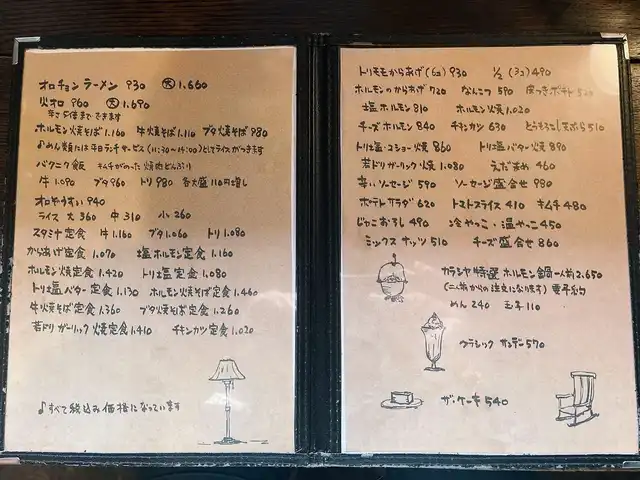 オロチョンラーメン 930 大 1,660
火オロ 960 大 1,690
辛さ5倍までできます
ホルモン焼そば 1,160 牛焼そば 1,110 ブタ焼そば 980
♪めん類には平日ランチサービス(11:30~14:00)としてライスがつきます
バクニク飯 キムチがのった焼肉どんぶり
牛 1,090 ブタ 960 トリ 980 各大盛110円増し
オロぞうすい 940
ライス 大 360 中 310 小 260
スタミナ定食 牛 1,160 ブタ 1,060 トリ 1,080
からあげ定食 1,070 塩ホルモン定食 1,160
ホルモン焼定食 1,420 トリ塩定食 1,080
トリ塩バター定食 1,130 ホルモン焼そば定食 1,460
牛焼そば定食 1,360 ブタ焼そば定食 1,260
若ドリガーリック焼定食 1,410 チキンカツ定食 1,020
♪すべて税込み価格になっています
トリモモからあげ(6コ) 930 1/2(3コ) 490
ホルモンのからあげ 720 なんこつ 590 皮つきポテト
塩ホルモン 810 ホルモン焼 1,020
チーズホルモン 840 チキンカツ 630 とうもろこし天ぷら 510
トリ塩・コショー焼 860 トリ塩バター焼 890
若ドリガーリック焼 1,080 えだまめ 460
辛いソーセージ 590 ソーセージ盛合せ 980
ポテトサラダ 620 トマトスライス 410 キムチ 480
じゃこおろし 490 冷やっこ・温やっこ 450
ミックスナッツ 510 チーズ盛合せ 860
カラシヤ特選ホルモン鍋一人前 2,650
(二人前からの注文になります) 要予約
めん 240 玉子 110
クラシックサンデー 570
ザ・ケーキ 540